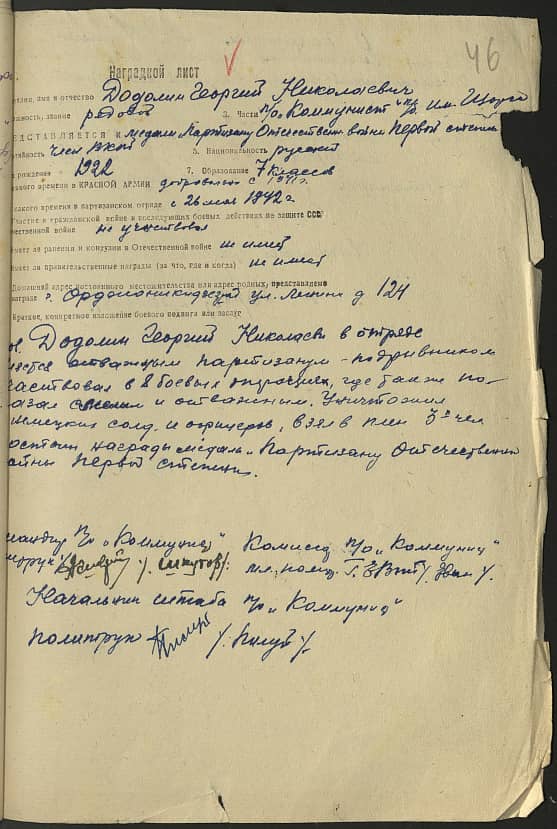 46
Наградной лист
имя и отчество Додолин Георгий Николаевич
звание рядовой 3. Часть п/о "Коммунист" п/б им. Щорса
ЕДСТАВЛЯЕТСЯ к медали Партизану Отечествен. войны Первой степени
член ВЛКСМ 5. Национальность русский
рождения 1922 7. Образование 7 классов
времени в КРАСНОЙ АРМИИ добровольно с
какого времени в партизанском отряде с 26 мая 1942 г.
Участие в гражданской войне и последующих боевых действиях по защите СССР
чественной войне не участвовал
меет ли ранения и контузии в Отечественной войне не имеет
меет ли правительственные награды (за что, где и когда) не имеет
Домашний адрес постоянного местожительства или адрес родных, представляемо
награде г. Орджоникидзе ул. Ленина д 124
Краткое, конкретное изложение боевого подвига или заслуг
Додолин Георгий Николаевич в отряде
яется отважным партизаном-подрывником
частвовал в 8 боевых операциях, где также по-
азал смелым и отважным. Уничтожил
немецких солд. и офицеров, взял в плен 3х чел
остоин награды медаль "Партизану Отечественной
ойны Первой степени.
мандир п/о "Коммунист" Комиссар п/о "Коммунист"
Начальник штаба п/о "Коммунист"
политрук